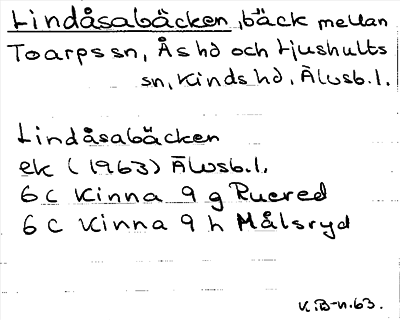 Lindåsabäcken, bäck mellan
Toarps sn, Ås hd och Ljushults
sn, Kinds hd, Älvsb.l.
Lindåsabäcken
ek (1963) Älvsb.l.
6 C Kinna 9 g Rucred
6 C Kinna 9 h Målsryd
K.B-n.63.